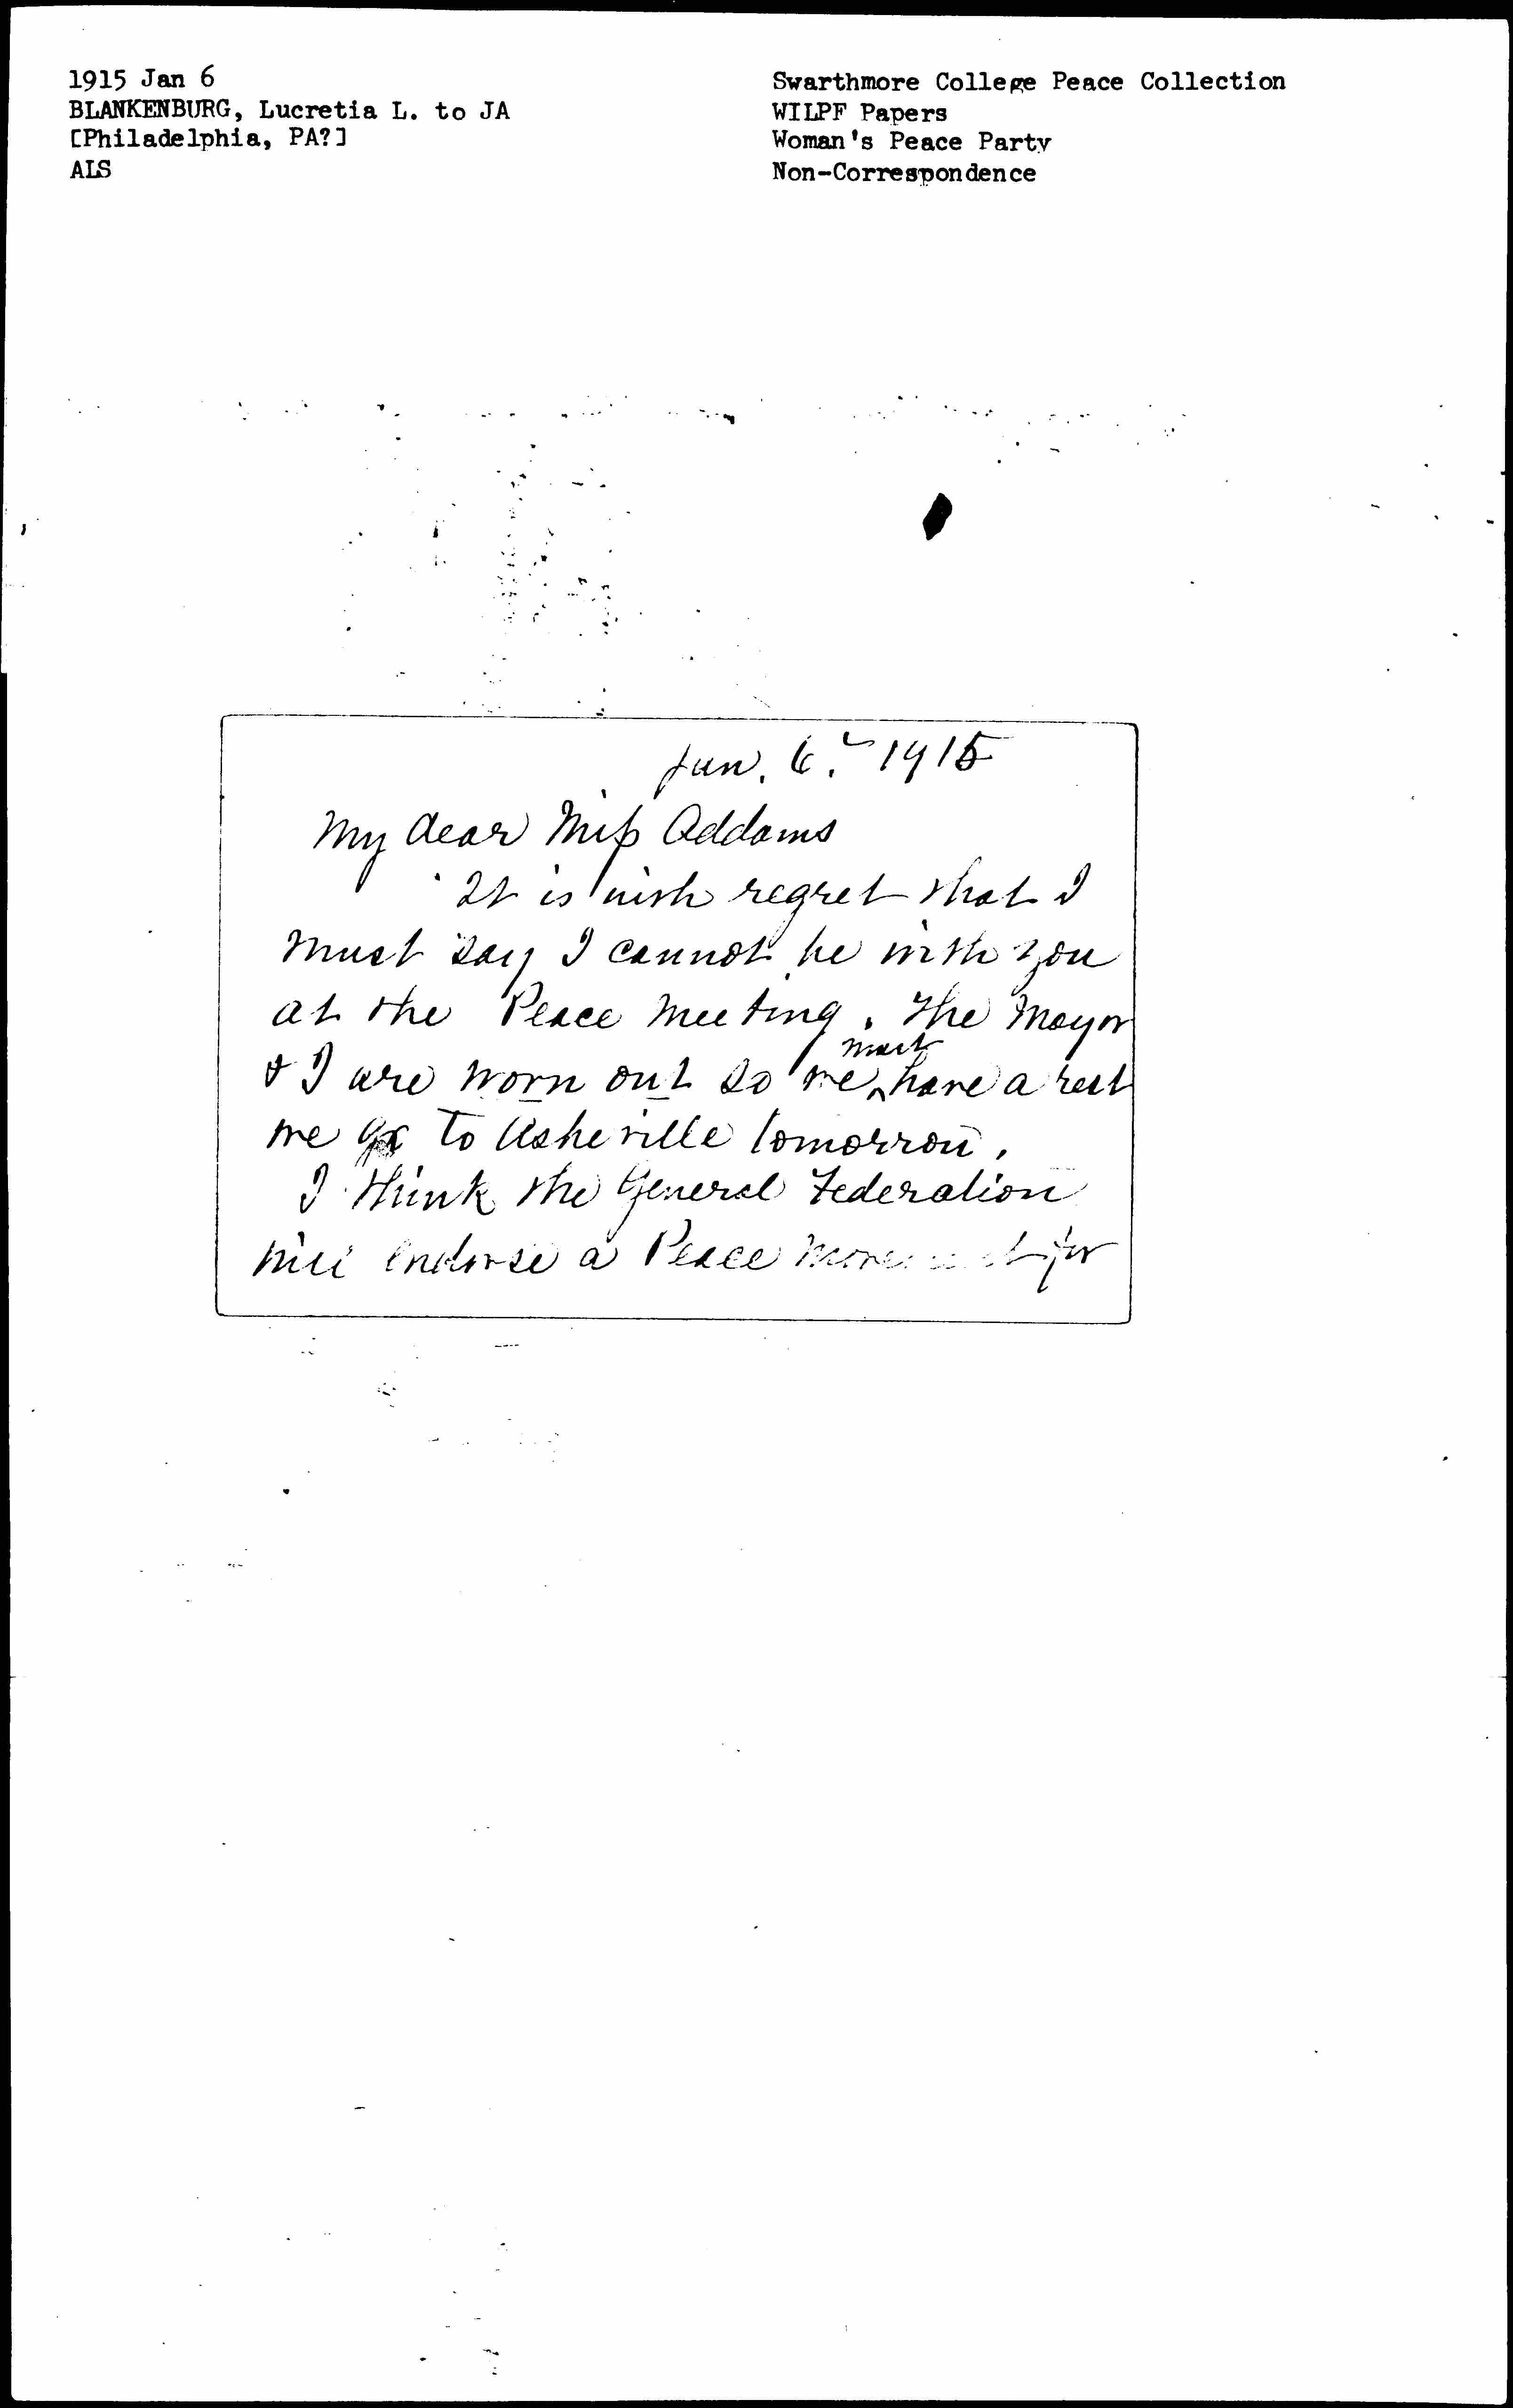 1915 Jan 6
BLANKENBURG, Lucretia L. to JA
[Philadelphia, PA?]
ALS
Swarthmore College Peace Collection
WILPF Papers
Woman's Peace Party
Non-Correspondence
Jan. 6. 1915
My dear Miss Addams
It is with regret that I
must say I cannot be with you
at the Peace meeting. The Mayor
& I are worn out so we must have a rest
we go to Asheville tomorrow.
I think the General Federation
will endorse a Peace movement for